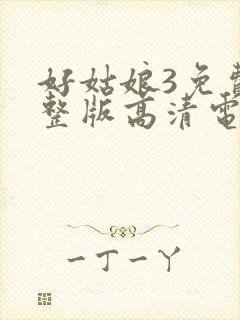 好姑娘3免费
整版高清電
一丁一丫